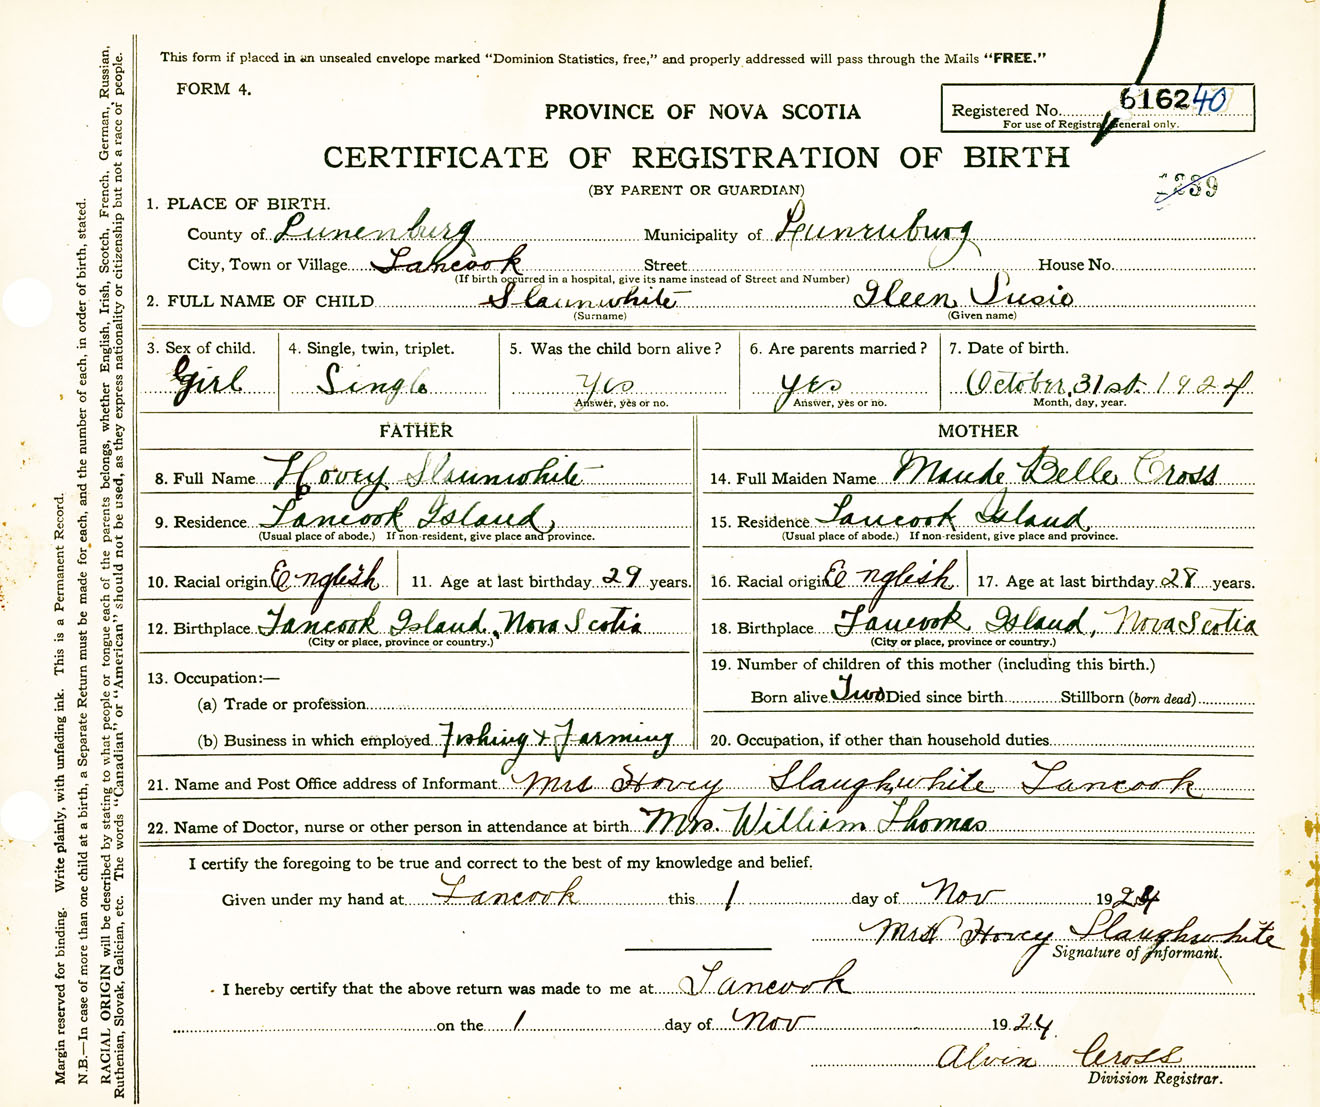 This form if placed in an unsealed envelope marked "Dominion Statistics, free," and properly addressed will pass through the Mails "FREE."
FORM 4.
PROVINCE OF NOVA SCOTIA
Registered No. 616240
For use of Registrar General only.
CERTIFICATE OF REGISTRATION OF BIRTH
(BY PARENT OR GUARDIAN)
1. PLACE OF BIRTH.
County of Lunenburg Municipality of Lunenburg
City, Town or Village Tancook Street House No.
(If birth occurred in a hospital, give its name instead of Street and Number)
2. FULL NAME OF CHILD Slaunwhite Ileen Susie
(Surname) (Given name)
3. Sex of child. 4. Single, twin, triplet. 5. Was the child born alive? 6. Are parents married? 7. Date of birth.
Girl Single Yes Yes October 31st 1924
Answer, yes or no. Answer, yes or no. Month, day, year.
FATHER MOTHER
8. Full Name Hovey Slaunwhite 14. Full Maiden Name Maude Belle Cross
9. Residence Tancook Island 15. Residence Tancook Island
(Usual place of abode.) If non-resident, give place and province. (Usual place of abode.) If non-resident, give place and province.
10. Racial origin English 11. Age at last birthday 29 years. 16. Racial origin English 17. Age at last birthday 28 years.
12. Birthplace Tancook Island, Nova Scotia 18. Birthplace Tancook Island, Nova Scotia
(City or place, province or country.) (City or place, province or country.)
13. Occupation:— 19. Number of children of this mother (including this birth.)
(a) Trade or profession Born alive Two Died since birth Stillborn (born dead)
(b) Business in which employed Fishing & Farming 20. Occupation, if other than household duties
21. Name and Post Office address of Informant Mrs Hovey Slaughwhite Tancook
22. Name of Doctor, nurse or other person in attendance at birth Mrs. William Thomas
I certify the foregoing to be true and correct to the best of my knowledge and belief.
Given under my hand at Tancook this 1 day of Nov 1924
Mrs Hovey Slaughwhite
Signature of Informant.
I hereby certify that the above return was made to me at Tancook
on the 1 day of Nov 1924.
Alvin Cross
Division Registrar.
Margin reserved for binding. Write plainly, with unfading ink. This is a Permanent Record.
N.B.—In case of more than one child at a birth, a Separate Return must be made for each, and the number of each, in order of birth, stated.
RACIAL ORIGIN will be described by stating to what people or tongue each of the parents belongs, whether English, Irish, Scotch, French, German, Russian,
Ruthenian, Slovak, Galician, etc. The words "Canadian" or "American" should not be used, as they express nationality or citizenship but not a race of people.